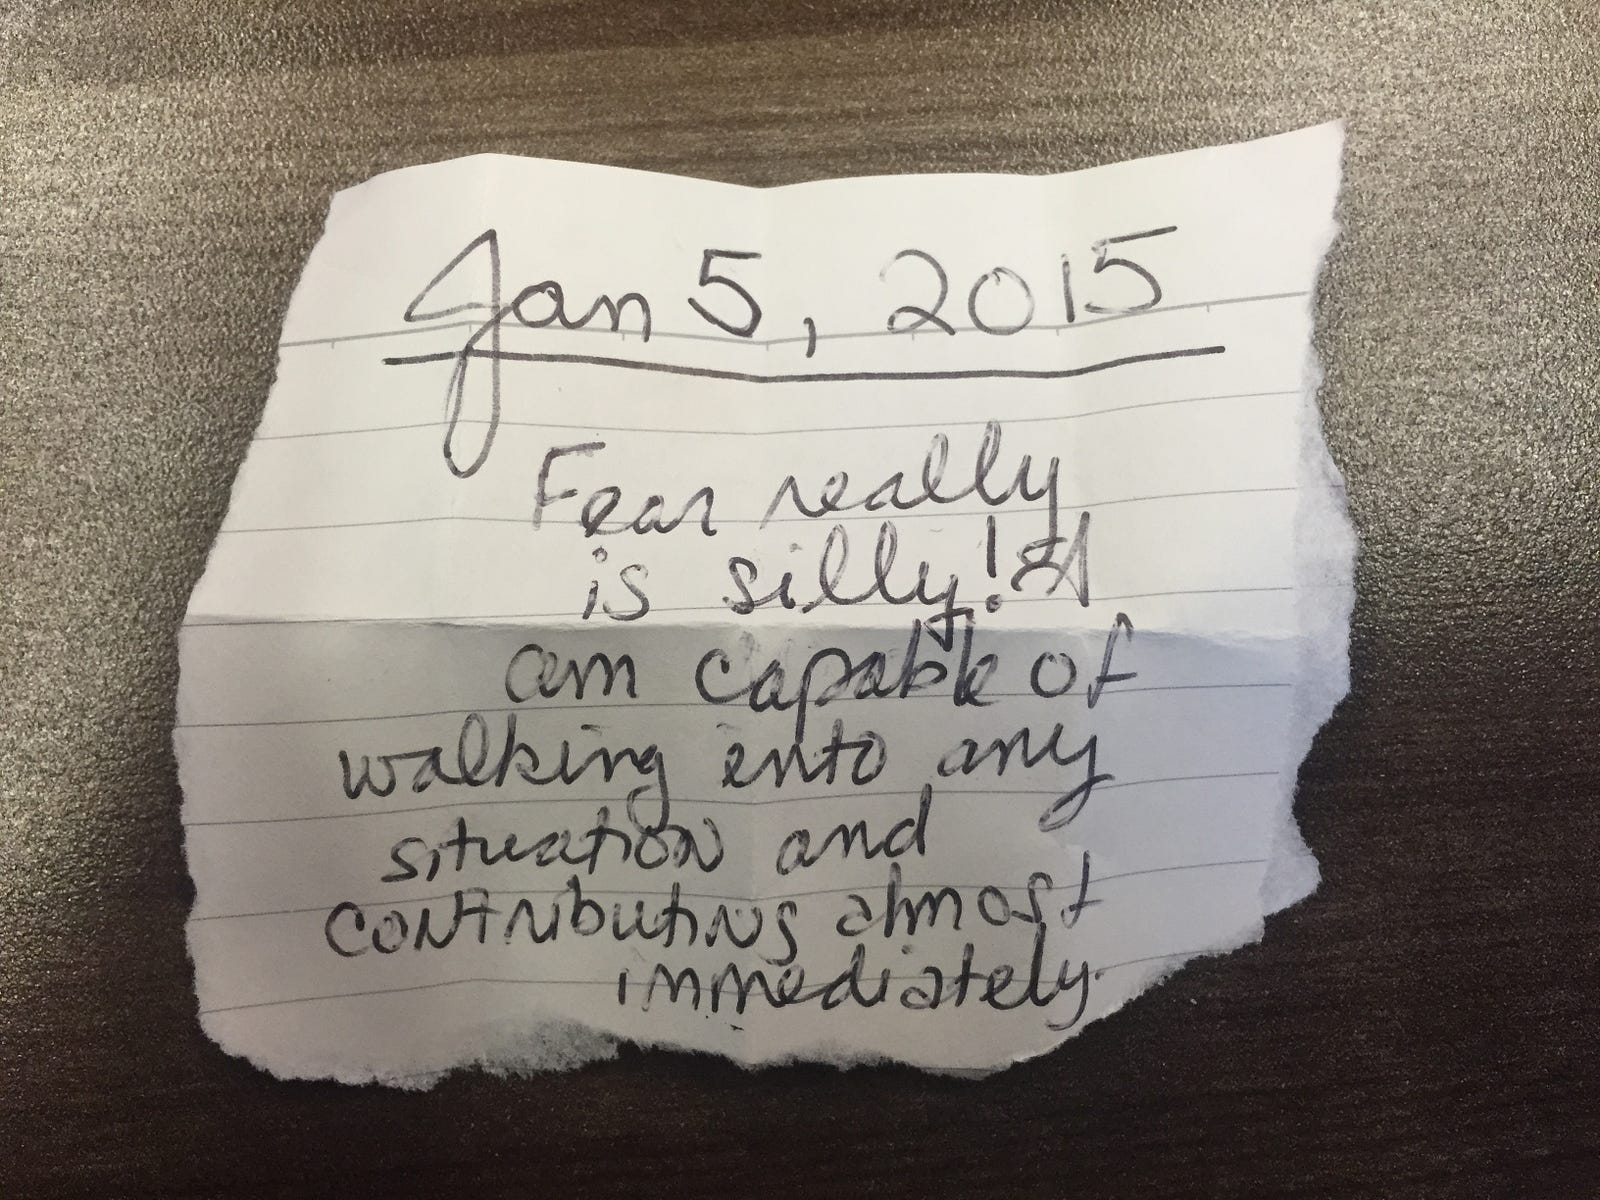 Jan 5, 2015
Fear really
is silly! I
am capable of
walking into any
situation and
contributing almost
immediately.